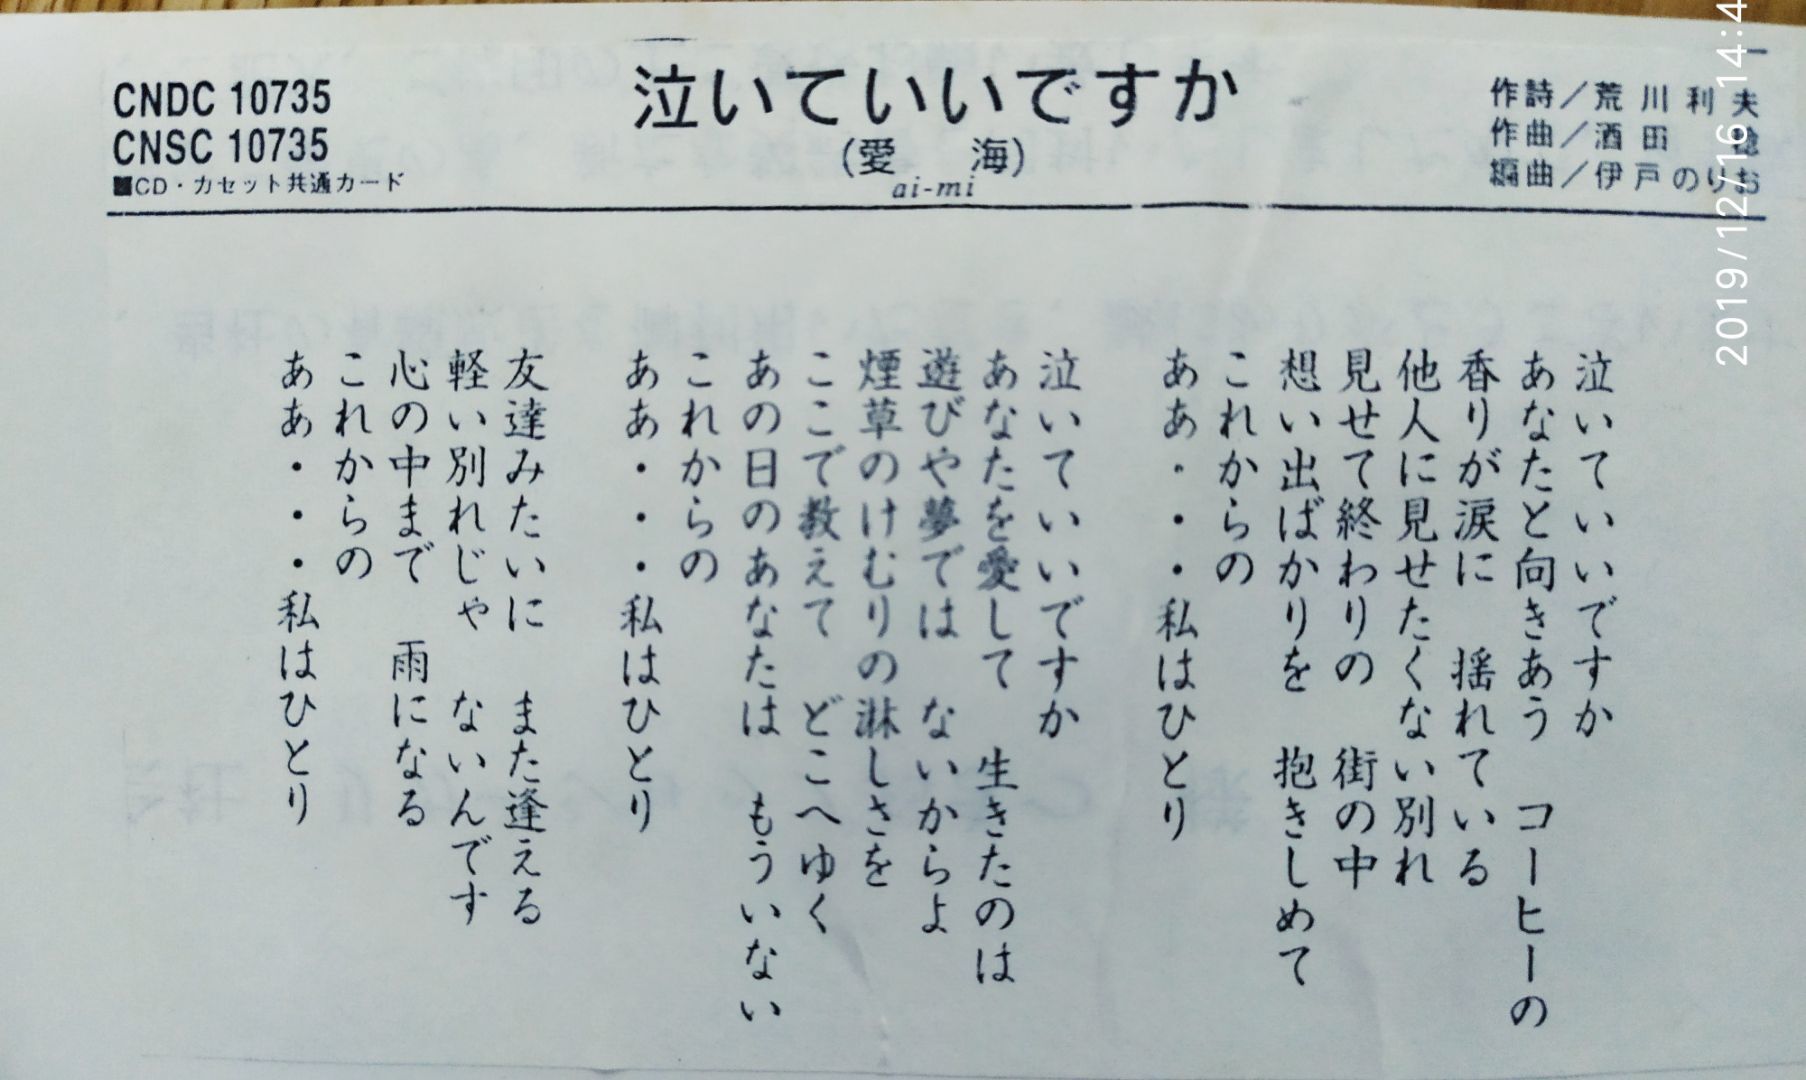 CNDC 10735
CNSC 10735
■CD・カセット共通カード
泣いていいですか
(愛　海)
ai-mi
作詩／荒川利夫
作曲／酒田　稔
編曲／伊戸のりお
泣いていいですか
あなたと向きあう　コーヒーの
香りが涙に　揺れている
他人に見せたくない別れ
見せて終わりの　街の中
想い出ばかりを　抱きしめて
これからの
ああ・・・私はひとり
泣いていいですか
あなたを愛して　生きたのは
遊びや夢では　ないからよ
煙草のけむりの淋しさを
ここで教えて　どこへゆく
あの日のあなたは　もういない
これからの
ああ・・・私はひとり
友達みたいに　また逢える
軽い別れじゃ　ないんです
心の中まで　雨になる
これからの
ああ・・・私はひとり
2019/12/16 14:4